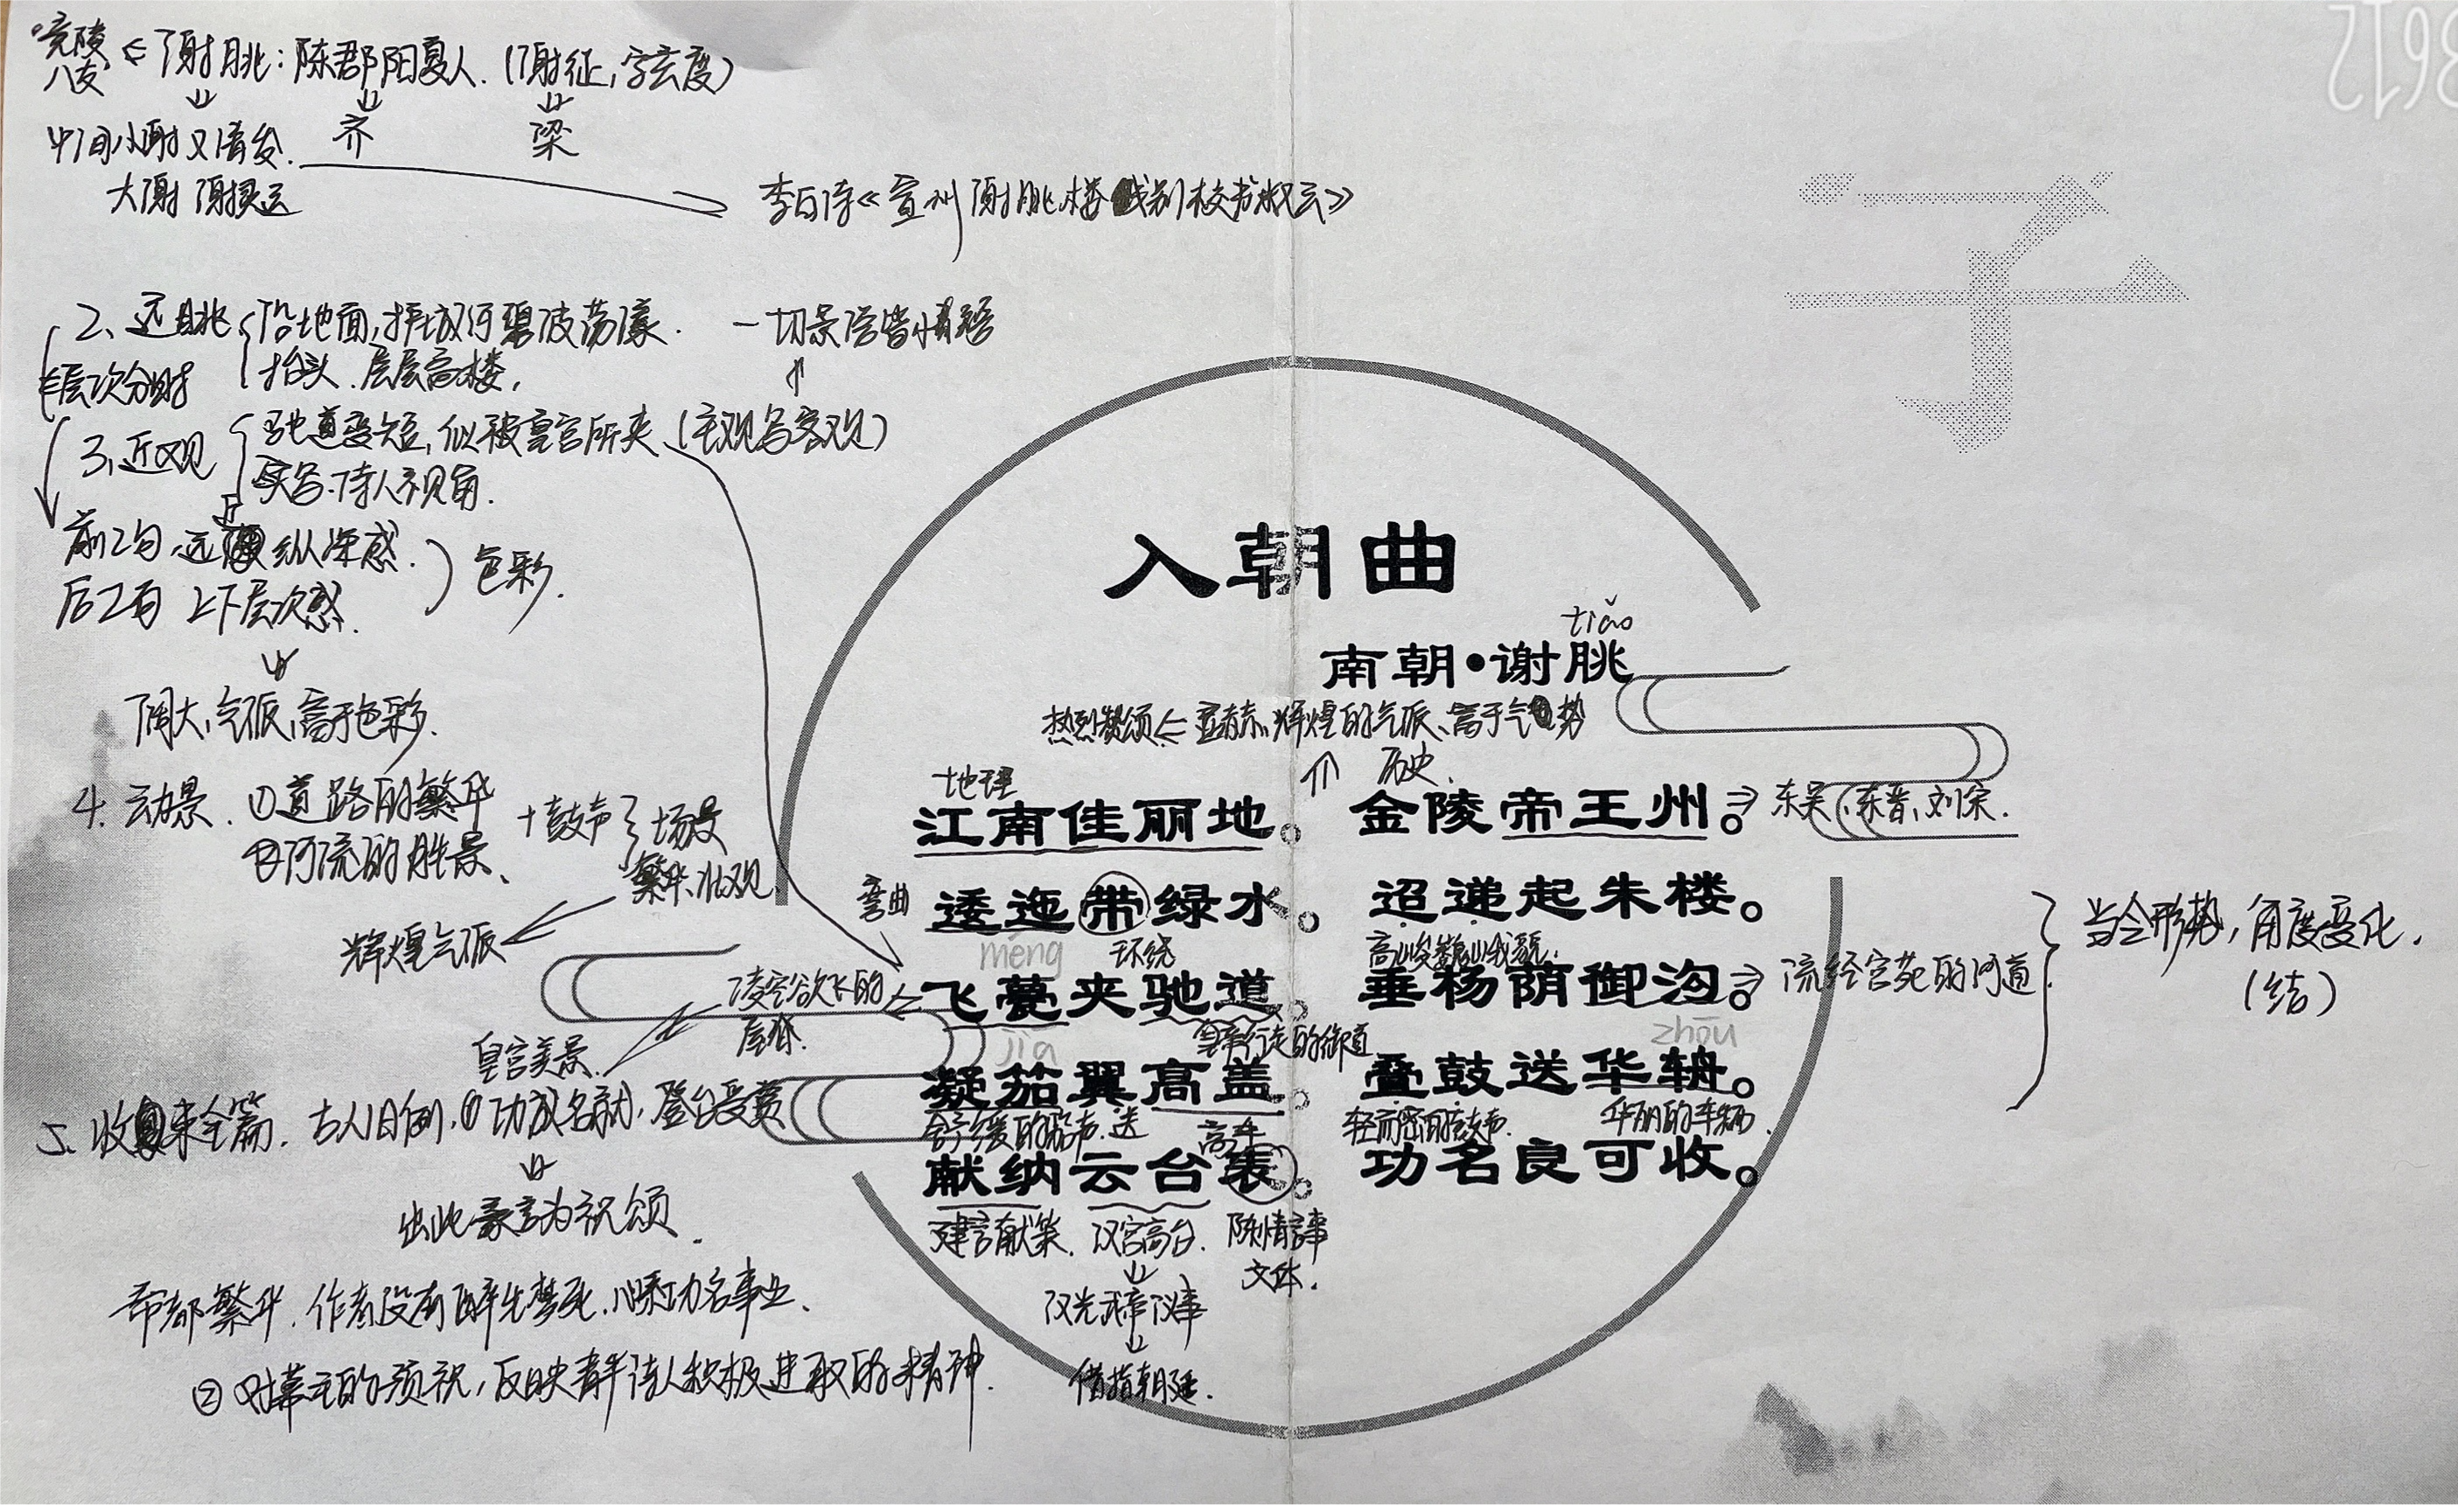 竟陵
八友
⇐谢朓：陈郡阳夏人.（谢征，字玄度）
中间小谢又清发.
齐
梁
大谢 谢灵运
李白诗《宣州谢朓楼饯别校书叔云》
2、远眺
沿地面,护城河碧波荡漾.
抬头.层层高楼,
一切景语皆情语
层次分明
3、近观
驰道变短,似被皇宫所夹（主观与客观）
实写.诗人视角.
前2句.远近 纵深感.
后2句 上下层次感.
色彩.
阔大,气派,富于色彩.
4.动景.①道路的繁华
②河流的胜景、
+鼓声
场景
繁华、壮观
辉煌气派
皇宫美景.
5、收束全篇.古人旧例,①功成名就,登台受赏
出此豪言为祝颂.
帝都繁华.作者没有醉生梦死.心系功名事业.
②对幕主的颂祝,反映青年诗人积极进取的精神.
入朝曲
tiǎo
南朝•谢朓
热烈赞颂⇐显赫、辉煌的气派、富于气势
地理
历史.
江南佳丽地。金陵帝王州。
⇒东吴、东晋、刘宋.
弯曲
逶迤带绿水。迢递起朱楼。
méng
环绕
高峻巍峨貌.
凌空欲飞的
屋脊.
飞甍夹驰道。垂杨荫御沟。
⇒流经宫苑的河道.
当今形势,角度变化.
（结）
jiā
皇帝行走的御道
zhōu
凝笳翼高盖。叠鼓送华辀。
舒缓的笳声.送
高车
轻而密的鼓声.
华丽的车辆.
献纳云台表。功名良可收。
建言献策.
汉宫高台.
陈情言事
文体.
汉光武帝议事
借指朝廷.